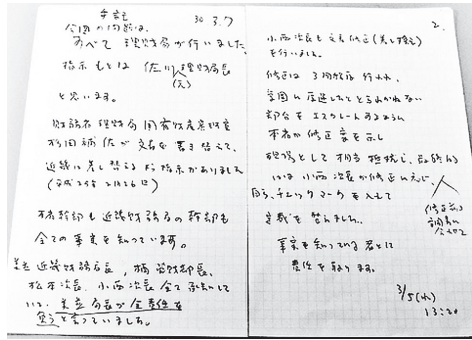 手記
30 3.7
今回の問題は、
すべて理財局が行いました、
指示もとは 佐川(元)理財局長
と思います。
財務省理財局国有財産審理室
杉田補佐が文書を書き替えて、
近畿に差し替える指示がありました
(平成29年2月26日)
本省幹部も近畿財務局の幹部も
全ての事実を知っています。
美並近畿財務局長、楠管財部長、
松本次長、小西次長全て承知して
いて、美並局長が全責任を
負うと言っていました。
2.
小西次長も文書修正(差し替え)
を行いました。
修正は3回程度行われ、
全国に
部分をエスカレートするように
本省が修正案を示し
現場として相当抵抗し、最終的
には小西次長が修正に応じ、
自ら、チェックマークを入れて
決裁を
修正前の
調書に
合わせ
事実を知っている者として
責任を取ります。
3/5(水)
13:20